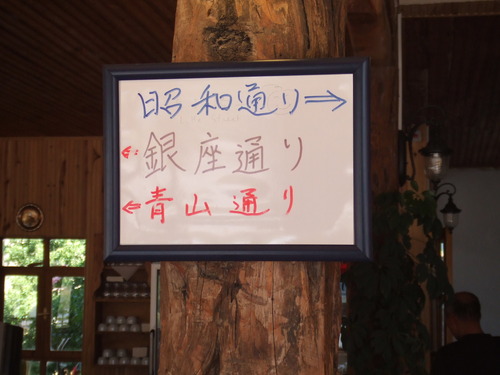 昭和通り⇒
⇐銀座通り
⇐青山通り